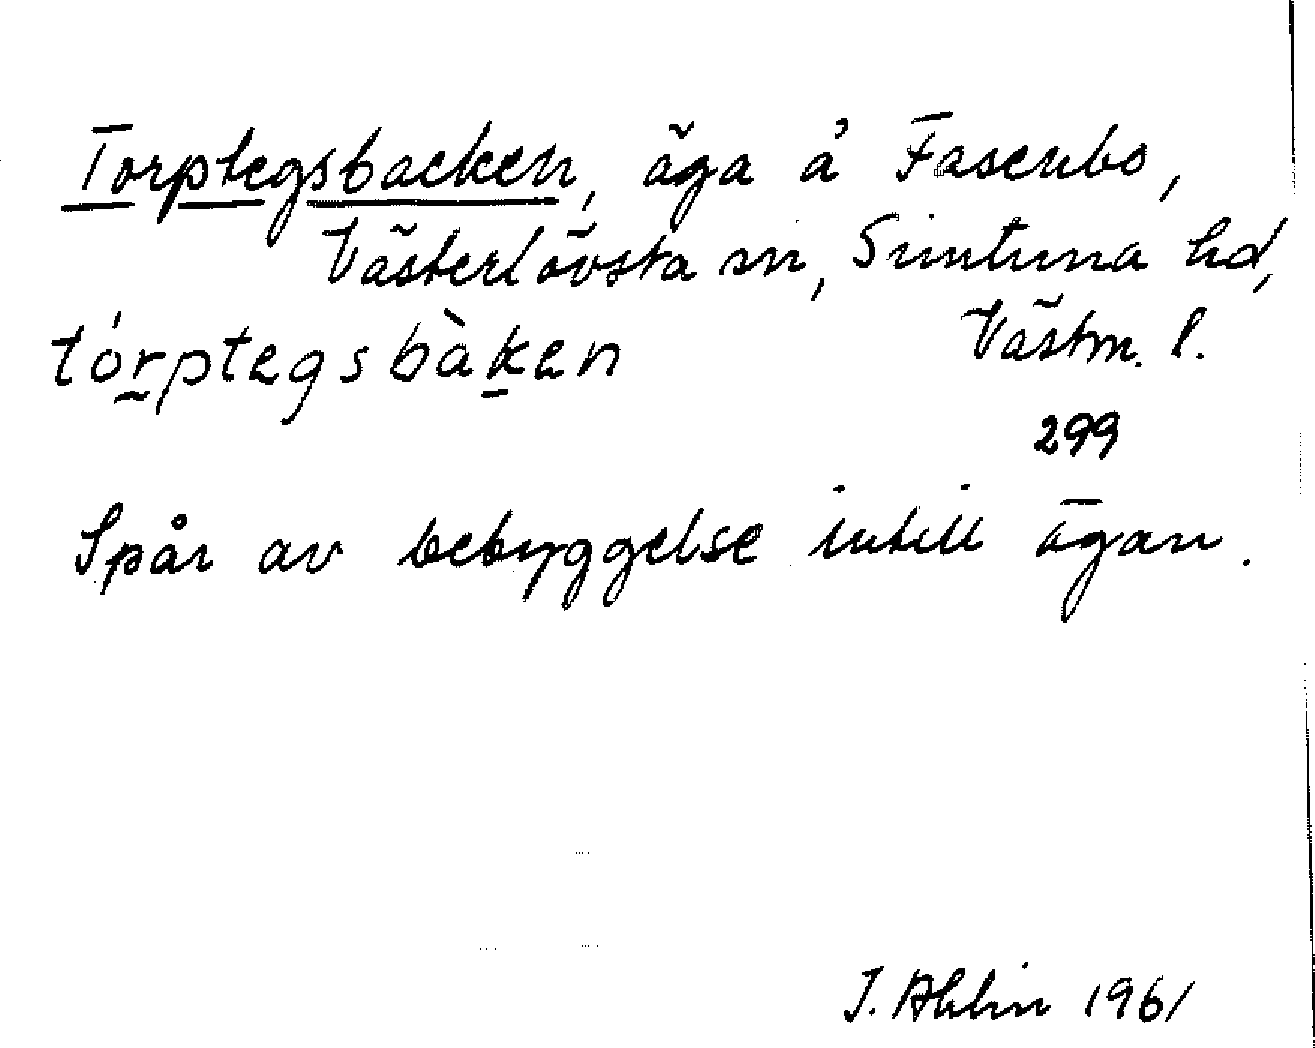 Torptegsbacken, äga å Fasenbo,
Västerlövsta sn, Simtuna hd,
tórptegsbàken Västm. l.
299
Spår av bebyggelse intill ägan.
J. Ahlin 1961